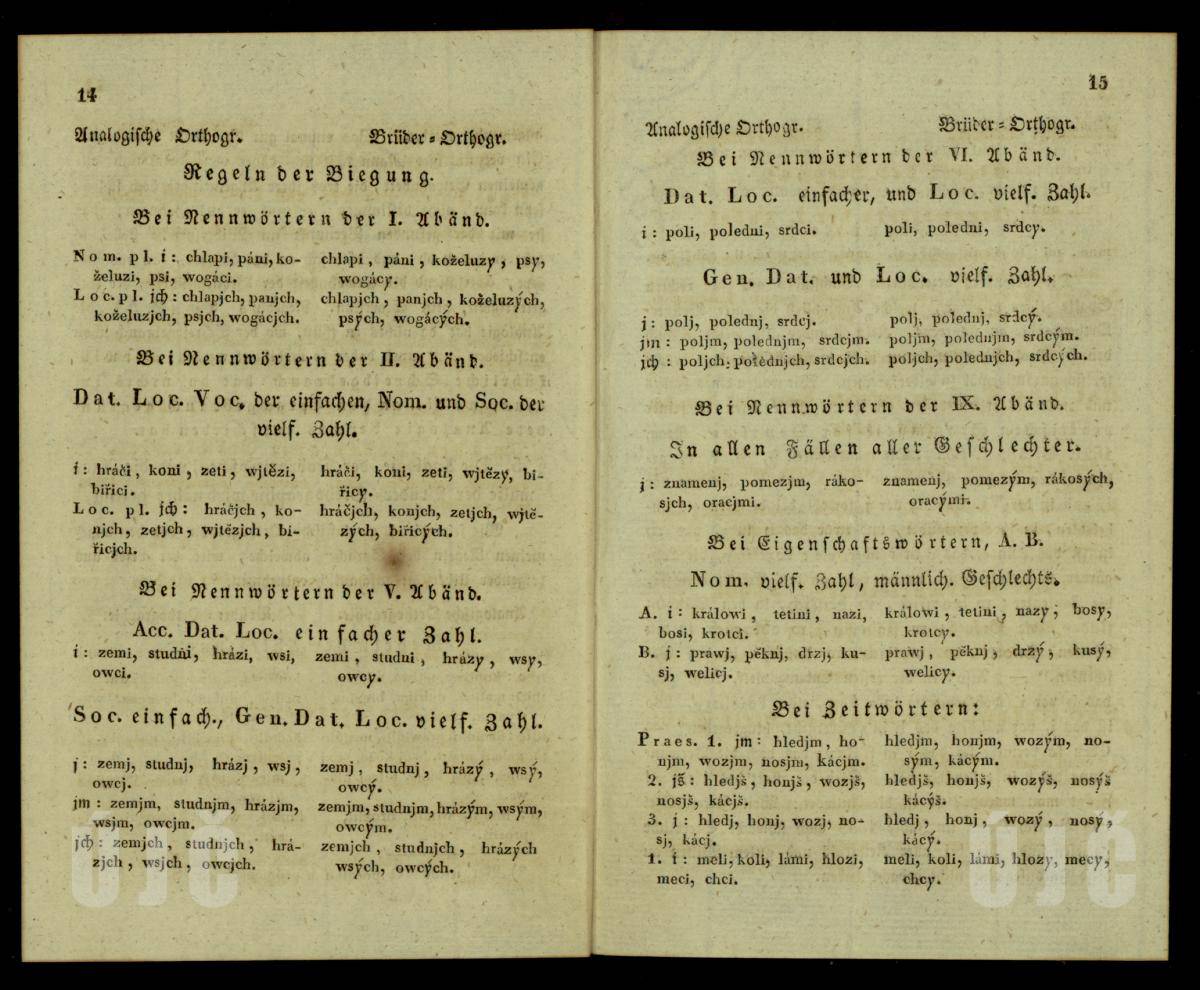 14
Analogische Orthogr. Brüder-Orthogr.
Regeln der Biegung.
Bei Nennwörtern der I. Abänd.
Nom. pl. i: chlapi, páni, ko-
želuzi, psi, wogáci.
chlapi, páni, koželuzy, psy,
wogácy.
Loc. pl. jch: chlapjch, panjch,
koželuzjch, psjch, wogácjch.
chlapjch, panjch, koželuzých,
psých, wogácých.
Bei Nennwörtern der II. Abänd.
Dat. Loc. Voc. der einfachen, Nom. und Soc. der
vielf. Zahl.
i: hráči, koni, zeti, wjtězi,
biřici.
hráči, koni, zeti, wjtězy, bi-
řicy.
Loc. pl. jch: hráčjch, ko-
njch, zetjch, wjtězjch, bi-
řicjch.
hráčjch, konjch, zetjch, wjtě-
zých, biřicých.
Bei Nennwörtern der V. Abänd.
Acc. Dat. Loc. einfacher Zahl.
i: zemi, studni, hrázi, wsi,
owci.
zemi, studni, hrázy, wsy,
owcy.
Soc. einfach., Gen. Dat. Loc. vielf. Zahl.
j: zemj, studnj, hrázj, wsj,
owcj.
zemj, studnj, hrázý, wsý,
owcý.
jm: zemjm, studnjm, hrázjm,
wsjm, owcjm.
zemjm, studnjm, hrázým, wsým,
owcým.
jch: zemjch, studnjch, hrá-
zjch, wsjch, owcjch.
zemjch, studnjch, hrázých
wsých, owcých.
15
Analogische Orthogr. Brüder-Orthogr.
Bei Nennwörtern der VI. Abänd.
Dat. Loc. einfacher, und Loc. vielf. Zahl.
i: poli, poledni, srdci. poli, poledni, srdcy.
Gen. Dat. und Loc. vielf. Zahl.
j: polj, polednj, srdcj. polj, polednj, srdcý.
jm: poljm, polednjm, srdcjm. poljm, polednjm, srdcým.
jch: poljch, polednjch, srdcjch. poljch, polednjch, srdcých.
Bei Nennwörtern der IX. Abänd.
In allen Fällen aller Geschlechter.
j: znamenj, pomezjm, ráko-
sjch, oracjmi.
znamenj, pomezým, rákosých,
oracými.
Bei Eigenschaftswörtern, A. B.
Nom. vielf. Zahl, männlich. Geschlechts.
A. i: králowi, tetini, nazi,
bosi, krotci.
králowi, tetini, nazy, bosy,
krotcy.
B. j: prawj, pěknj, drzj, ku-
sj, welicj.
prawj, pěknj, drzý, kusý,
welicý.
Bei Zeitwörtern:
Praes. 1. jm: hledjm, ho-
njm, wozjm, nosjm, kácjm.
hledjm, honjm, wozým, no-
sým, kácým.
2. jš: hledjš, honjš, wozjš,
nosjš, kácjš.
hledjš, honjš, wozýš, nosýš
kácýš.
3. j: hledj, honj, wozj, no-
sj, kácj.
hledj, honj, wozý, nosý,
kácý.
1. i: meli, koli, lámi, hlozi,
meci, chci.
meli, koli, lámi, hlozy, mecy,
chcy.
ÚJČ
ÚJČ